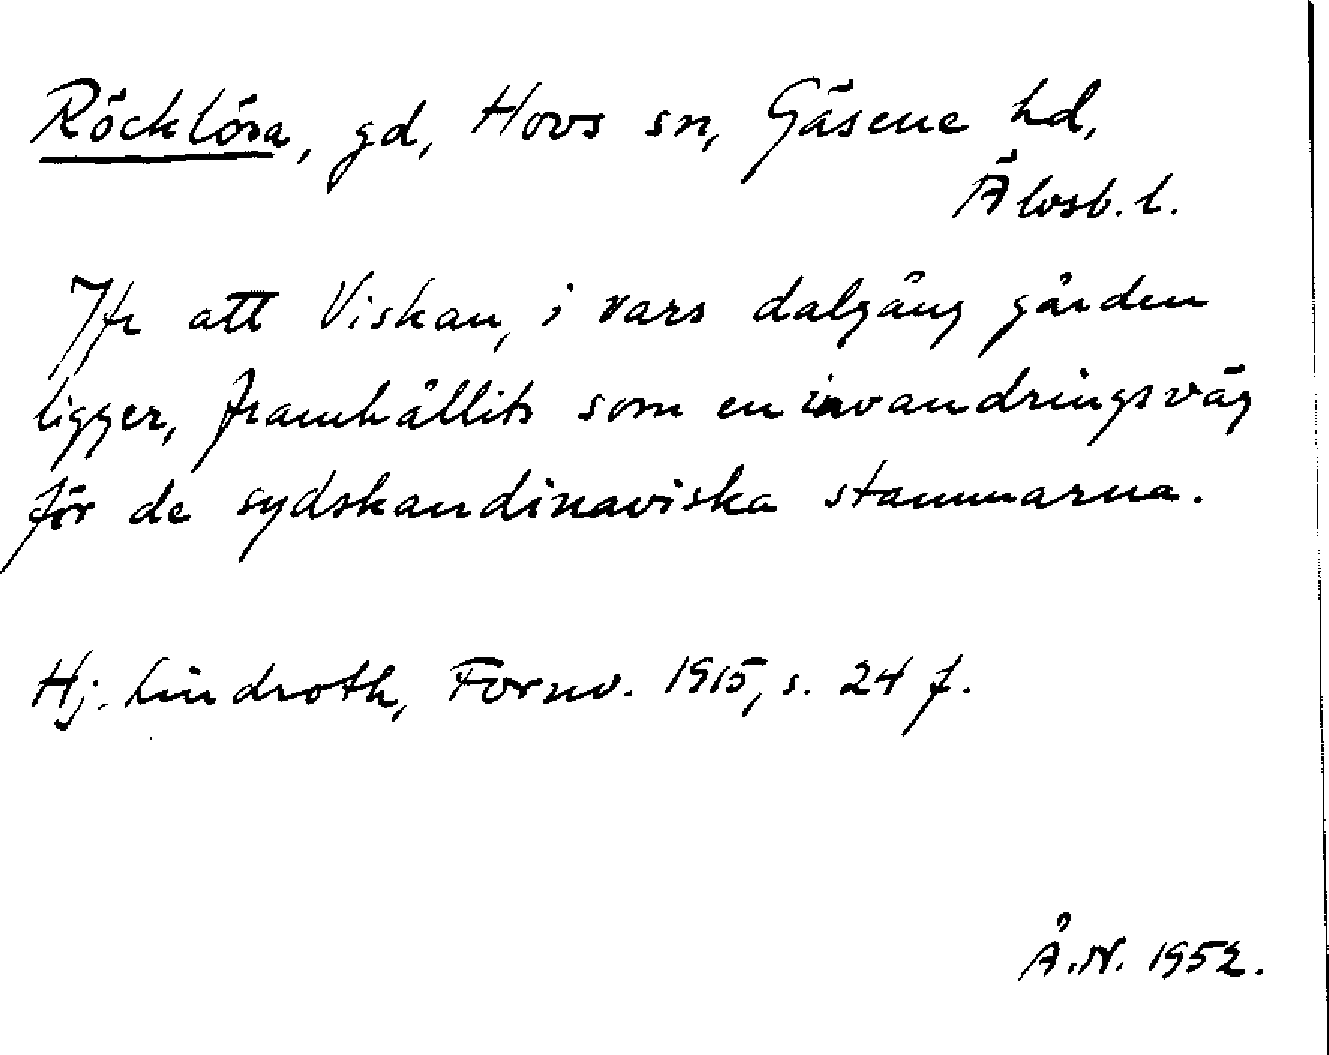 Röcklösa, gd, Hovs sn, Gäsene hd,
Älvsb. l.
Jfr att Viskan, i vars dalgång gården
ligger, framhållits som en invandringsväg
för de sydskandinaviska stammarna.
Hj. Lindroth, Fornv. 1915, s. 24 f.
Å.N. 1952.